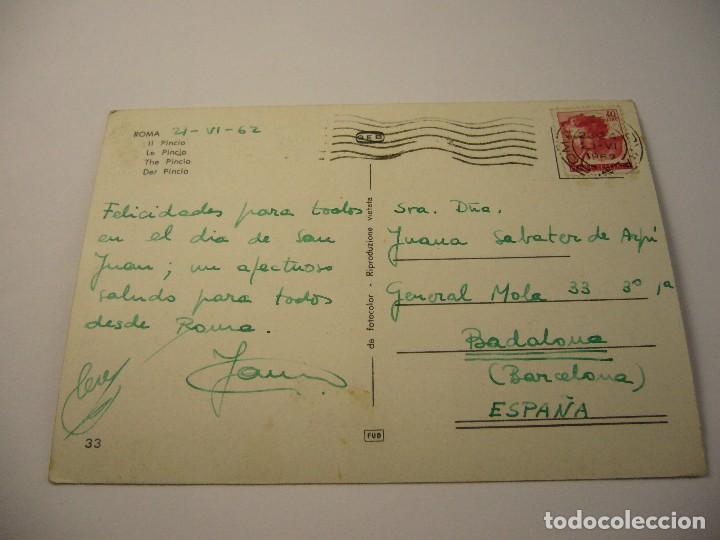 ROMA 21-VI-62
Il Pincio
Le Pincio
The Pincio
Der Pincio
Felicidades para todos
en el dia de San
Juan; un afectuoso
saludo para todos
desde Roma.
33
da fotocolor - Riproduzione vietata
FUD
GEB
40
ROMA
1962
Sra. Dña.
Juana Sabater de Arpí
General Mola 33 3º 1ª
Badalona
(Barcelona)
ESPAÑA
todocoleccion.net